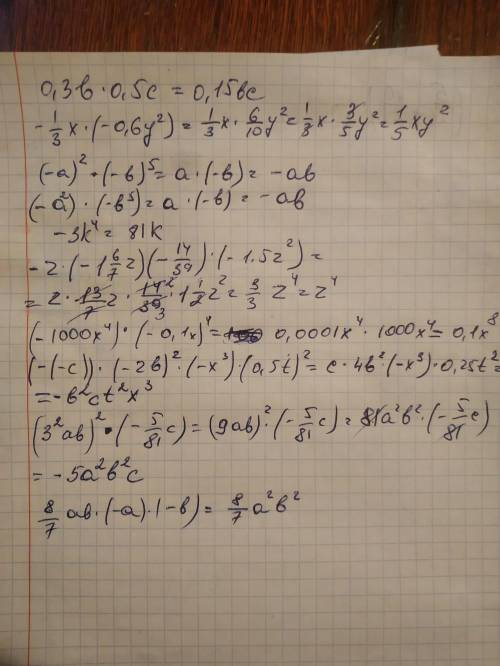 0,3в·0,5с = 0,15вс
-1/3x·(-0,6y²) = 1/3x·6/10y² = 1/3x·3/5y² = 1/5xy²
(-a)²·(-в)⁵ = a·(-в) = -aв
(-a²)·(-в⁵) = a·(-в) = -aв
-3k⁴ = 81k
-2·(-1 6/7 z)(-14/39)·(-1.5z²) =
= 2·13/7 z·14/39·1 1/2 z² = 3/3 z⁴ = z⁴
(-1000x⁴)·(-0,1x)⁴ = 0,0001x⁴·1000x⁴ = 0,1x⁸
(-(-c))·(-2в)²·(-x³)·(0,5t)² = c·4в²(-x³)·0,25t² =
= -в²ct²x³
(3²aв)²·(-5/81c) = (9aв)²·(-5/81c) = 81a²в²·(-5/81c)
= -5a²в²c
8/7aв·(-a)·(-в) = 8/7a²в²